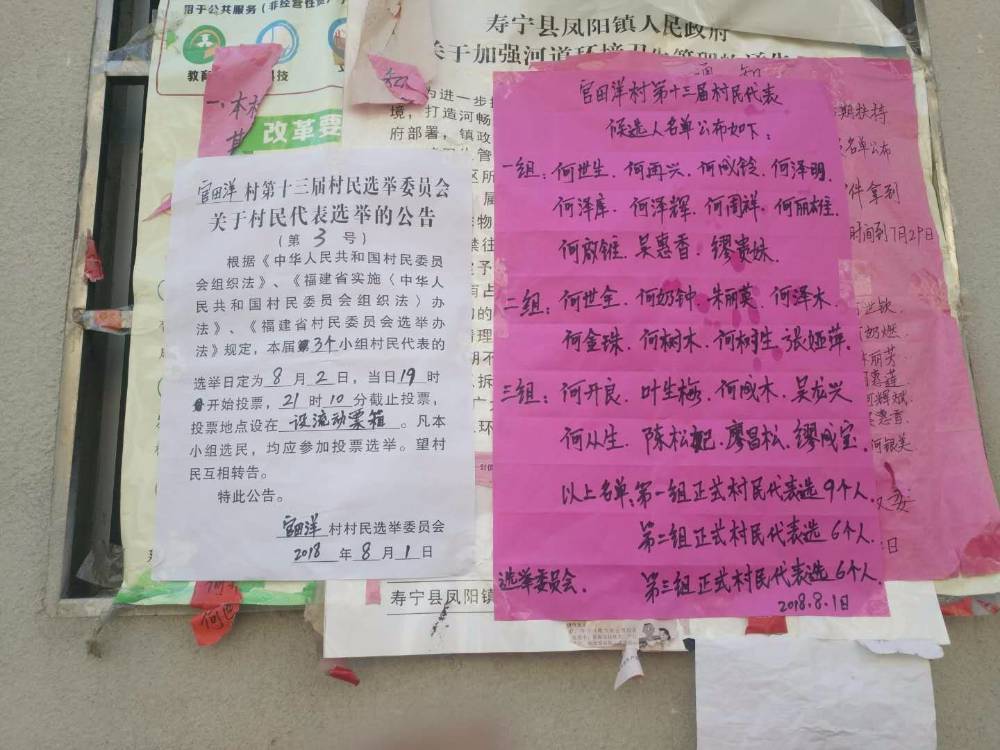 用于公共服务（非经营性资产
教育
科技
改革要
寿宁县凤阳镇人民政府
关于加强河道环境卫生管理的通告
为进一步
境，打造河畅
府部署，镇政
官田洋村第十三届村民选举委员会
关于村民代表选举的公告
（第 3 号）
根据《中华人民共和国村民委员
会组织法》、《福建省实施〈中华人
民共和国村民委员会组织法〉办
法》、《福建省村民委员会选举办
法》规定，本届第3个小组村民代表的
选举日定为8月2日，当日19时
开始投票，21时10分截止投票，
投票地点设在 设流动票箱 。凡本
小组选民，均应参加投票选举。望村
民互相转告。
特此公告。
官田洋村村民选举委员会
2018年8月1日
通知
官田洋村第十三届村民代表
候选人名单公布如下：
一组：何世生．何再兴．何成铃．何泽明
何泽库．何泽辉．何周祥．何丽桂．
何啟钟．吴惠香．缪贵妹．
二组：何世全．何奶钟．朱丽英．何泽木．
何金珠．何树木．何树生．张娅萍．
三组：何开良．叶生梅．何成木．吴龙兴
何从生．陈松妃．廖昌松．缪成宝．
以上名单，第一组正式村民代表选9个人．
第二组正式村民代表选6个人．
选举委员会．第三组正式村民代表选6个人．
2018.8.1日
期扶持
名单公布
件拿到
时间到7月27日
奶燃．
丽芳
惠莲
辉斌
吴惠香．
何银美
寿宁县凤阳镇